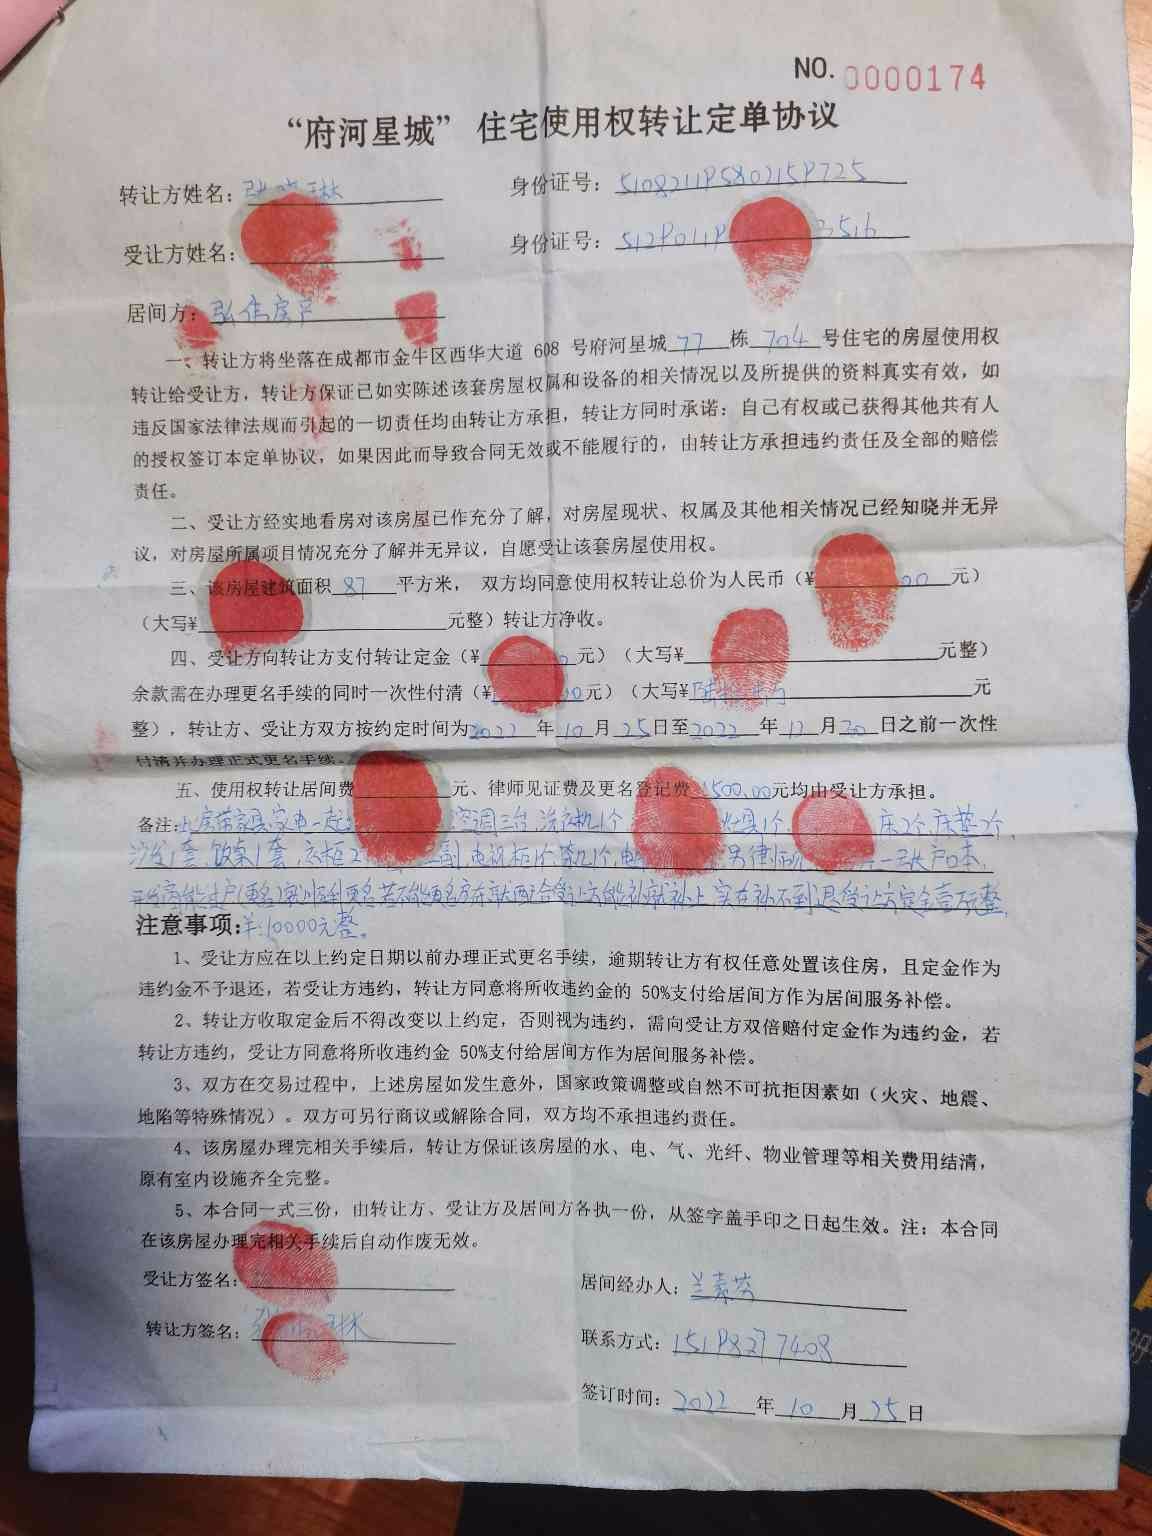 NO. 0000174
“府河星城” 住宅使用权转让定单协议
转让方姓名： 身份证号：
受让方姓名： 身份证号： 3516
居间方：弘信房产
一、转让方将坐落在成都市金牛区西华大道 608 号府河星城 77 栋 704 号住宅的房屋使用权
转让给受让方，转让方保证已如实陈述该套房屋权属和设备的相关情况以及所提供的资料真实有效，如
违反国家法律法规而引起的一切责任均由转让方承担，转让方同时承诺：自己有权或已获得其他共有人
的授权签订本定单协议，如果因此而导致合同无效或不能履行的，由转让方承担违约责任及全部的赔偿
责任。
二、受让方经实地看房对该房屋已作充分了解，对房屋现状、权属及其他相关情况已经知晓并无异
议，对房屋所属项目情况充分了解并无异议，自愿受让该套房屋使用权。
三、该房屋建筑面积 87 平方米， 双方均同意使用权转让总价为人民币（¥ 00 元）
（大写¥ 元整）转让方净收。
四、受让方向转让方支付转让定金（¥ 0 元）（大写¥ 元整）
余款需在办理更名手续的同时一次性付清（¥ 00元）（大写¥ 元
整），转让方、受让方双方按约定时间为2022 年 10 月 25 日至2022 年 12 月 30 日之前一次性
付清并办理正式更名手续。
五、使用权转让居间费 元、律师见证费及更名登记费 1500.00元均由受让方承担。
备注：此房带家具家电一起 空调三台，洗衣机1个 灶具1个 床2个，床垫2个
沙发1套，饭桌1套，衣柜2 电视柜1个，茶几1个，电 另律师 户口本，
更名若不能更名 退受让方定金壹万元整，
注意事项：¥：10000元整。
1、受让方应在以上约定日期以前办理正式更名手续，逾期转让方有权任意处置该住房，且定金作为
违约金不予退还，若受让方违约，转让方同意将所收违约金的 50%支付给居间方作为居间服务补偿。
2、转让方收取定金后不得改变以上约定，否则视为违约，需向受让方双倍赔付定金作为违约金，若
转让方违约，受让方同意将所收违约金 50%支付给居间方作为居间服务补偿。
3、双方在交易过程中，上述房屋如发生意外，国家政策调整或自然不可抗拒因素如（火灾、地震、
地陷等特殊情况）。双方可另行商议或解除合同，双方均不承担违约责任。
4、该房屋办理完相关手续后，转让方保证该房屋的水、电、气、光纤、物业管理等相关费用结清，
原有室内设施齐全完整。
5、本合同一式三份，由转让方、受让方及居间方各执一份，从签字盖手印之日起生效。注：本合同
在该房屋办理完相关手续后自动作废无效。
受让方签名： 居间经办人：兰素芬
转让方签名： 联系方式：15198277408
签订时间：2022 年 10 月 25 日